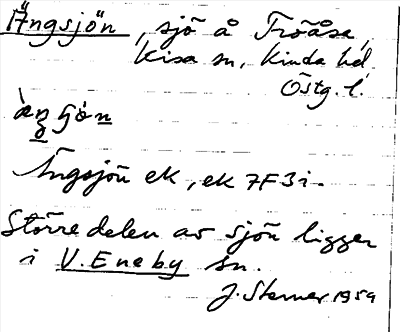 Ängsjön, sjö å Tröåsa,
Kisa sn, Kinda hd
Östg. l.
Ängsjön ek, ek 7F3i.
Större delen av sjön ligger
i V. Eneby sn.
J. Sterner 1959